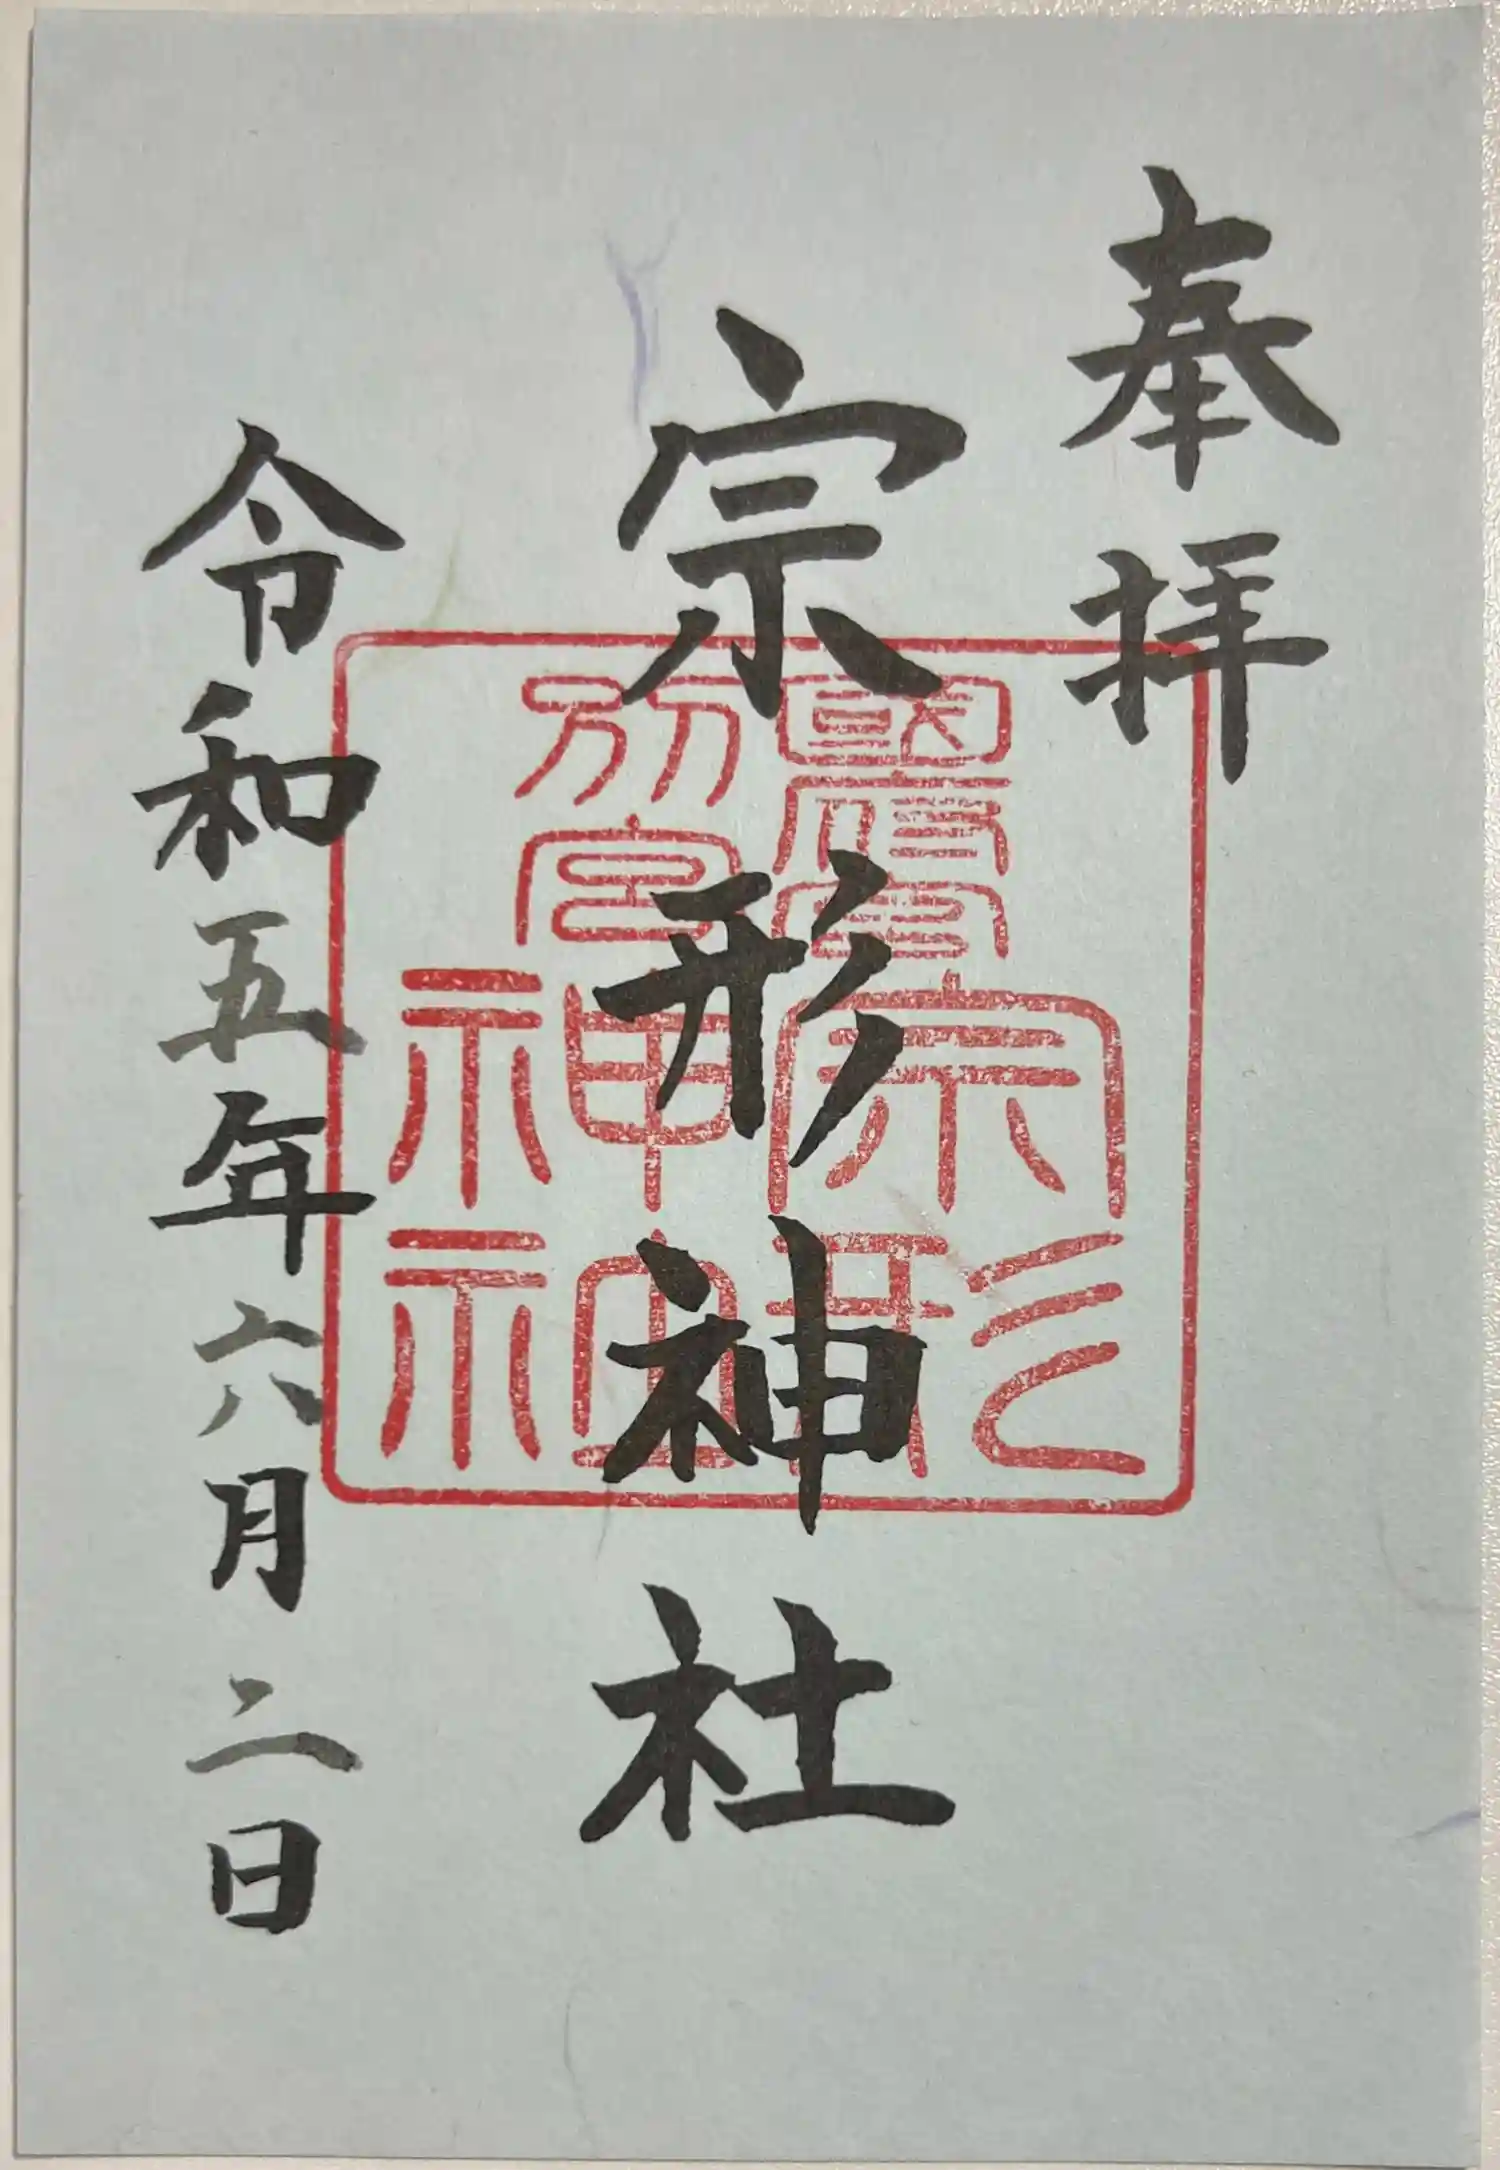 奉拝
宗形神社
令和五年六月二日
宗形
神社